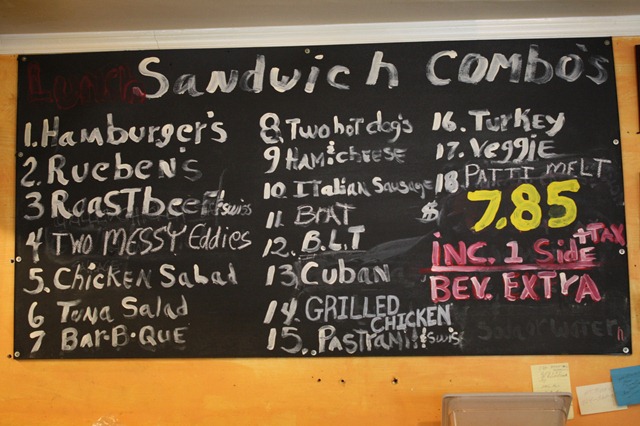 LUNCH SANDWICH COMBO'S
1. Hamburger's
2. Rueben's
3 ROASTbeef & swiss
4 TWO MESSY Eddies
5. Chicken Salad
6 Tuna Salad
7 BAR-B-QUE
8. Two hot dog's
9 HAM & cheese
10. Italian Sausage
11 BRAT
12. B.L.T
13. Cuban
14 GRILLED CHICKEN
15.. PASTRAMI & swiss
16. Turkey
17. Veggie
18 PATTI MELT
$ 7.85
INC. 1 Side + TAX
BEV. EXTRA